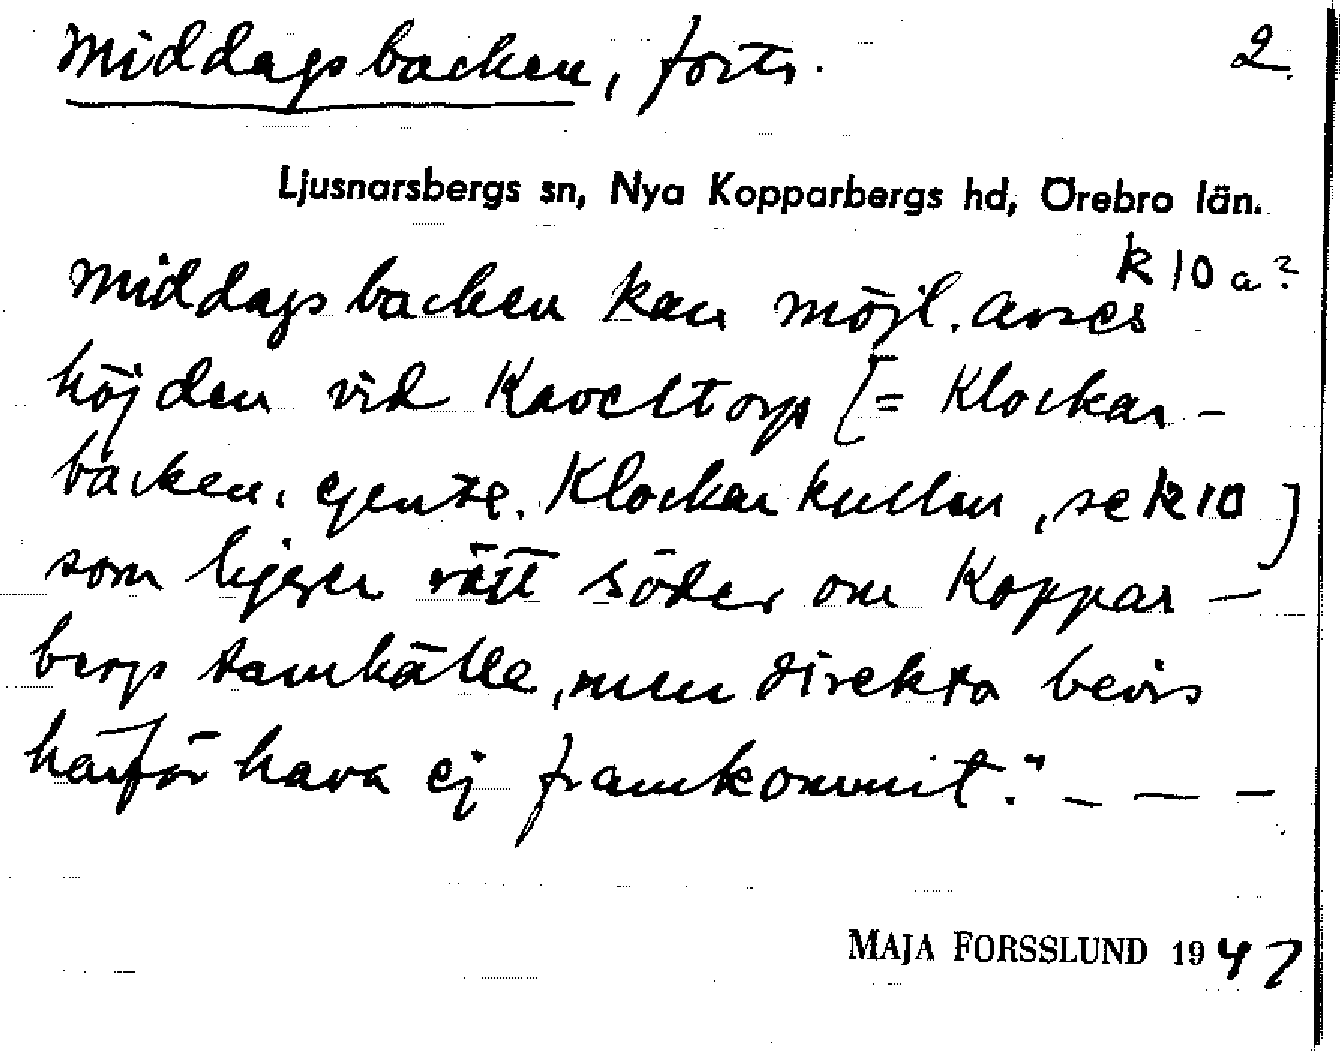 Middagsbacken, forts. 2.
Ljusnarsbergs sn, Nya Kopparbergs hd, Örebro län.
k 10 a?
Middagsbacken kan möjl. avses
höjden vid Kaveltorp [= Klockar-
backen. egentl. Klockarkullen, se k 10]
som ligger rätt söder om Koppar-
bergs samhälle, men direkta bevis
härför hava ej framkommit." – – –
MAJA FORSSLUND 1947